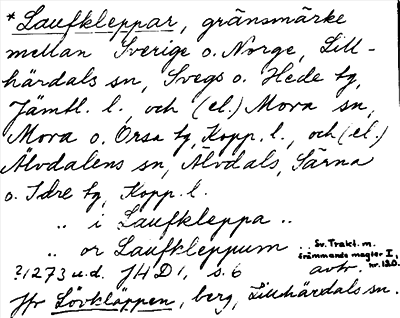 *Laufkleppar, gränsmärke
mellan Sverige o. Norge, Lill-
härdals sn, Svegs o. Hede tg,
Jämtl. l., och (el.) Mora sn,
Mora o. Orsa tg, Kopp. l., och (el.)
Älvdalens sn, Älvdals, Särna
o. Idre tg, Kopp. l.
„ i Laufkleppa ..
„ or Laufkleppum .. Sv. Trakt. m.
främmande magter I,
?1273 u.d. JHD 1, s. 6 avtr. nr. 120.
Jfr Lövkläppen, berg, Lillhärdals sn.